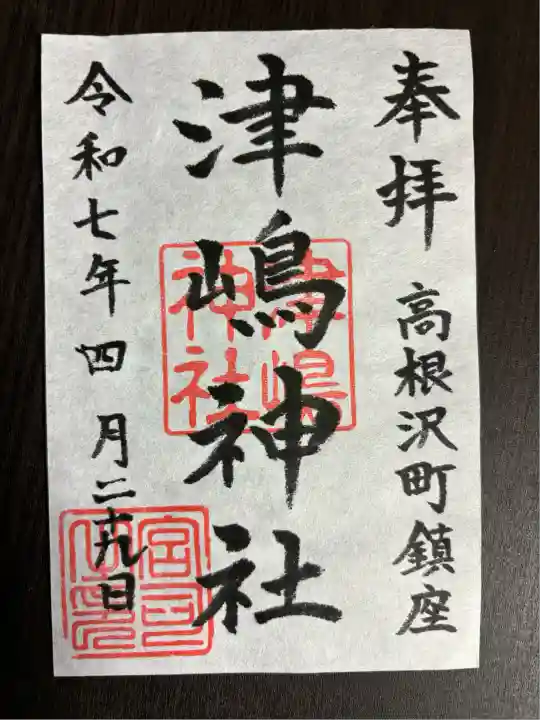 奉拝 高根沢町鎮座
津嶋神社
津嶋神社
令和七年四月二十九日